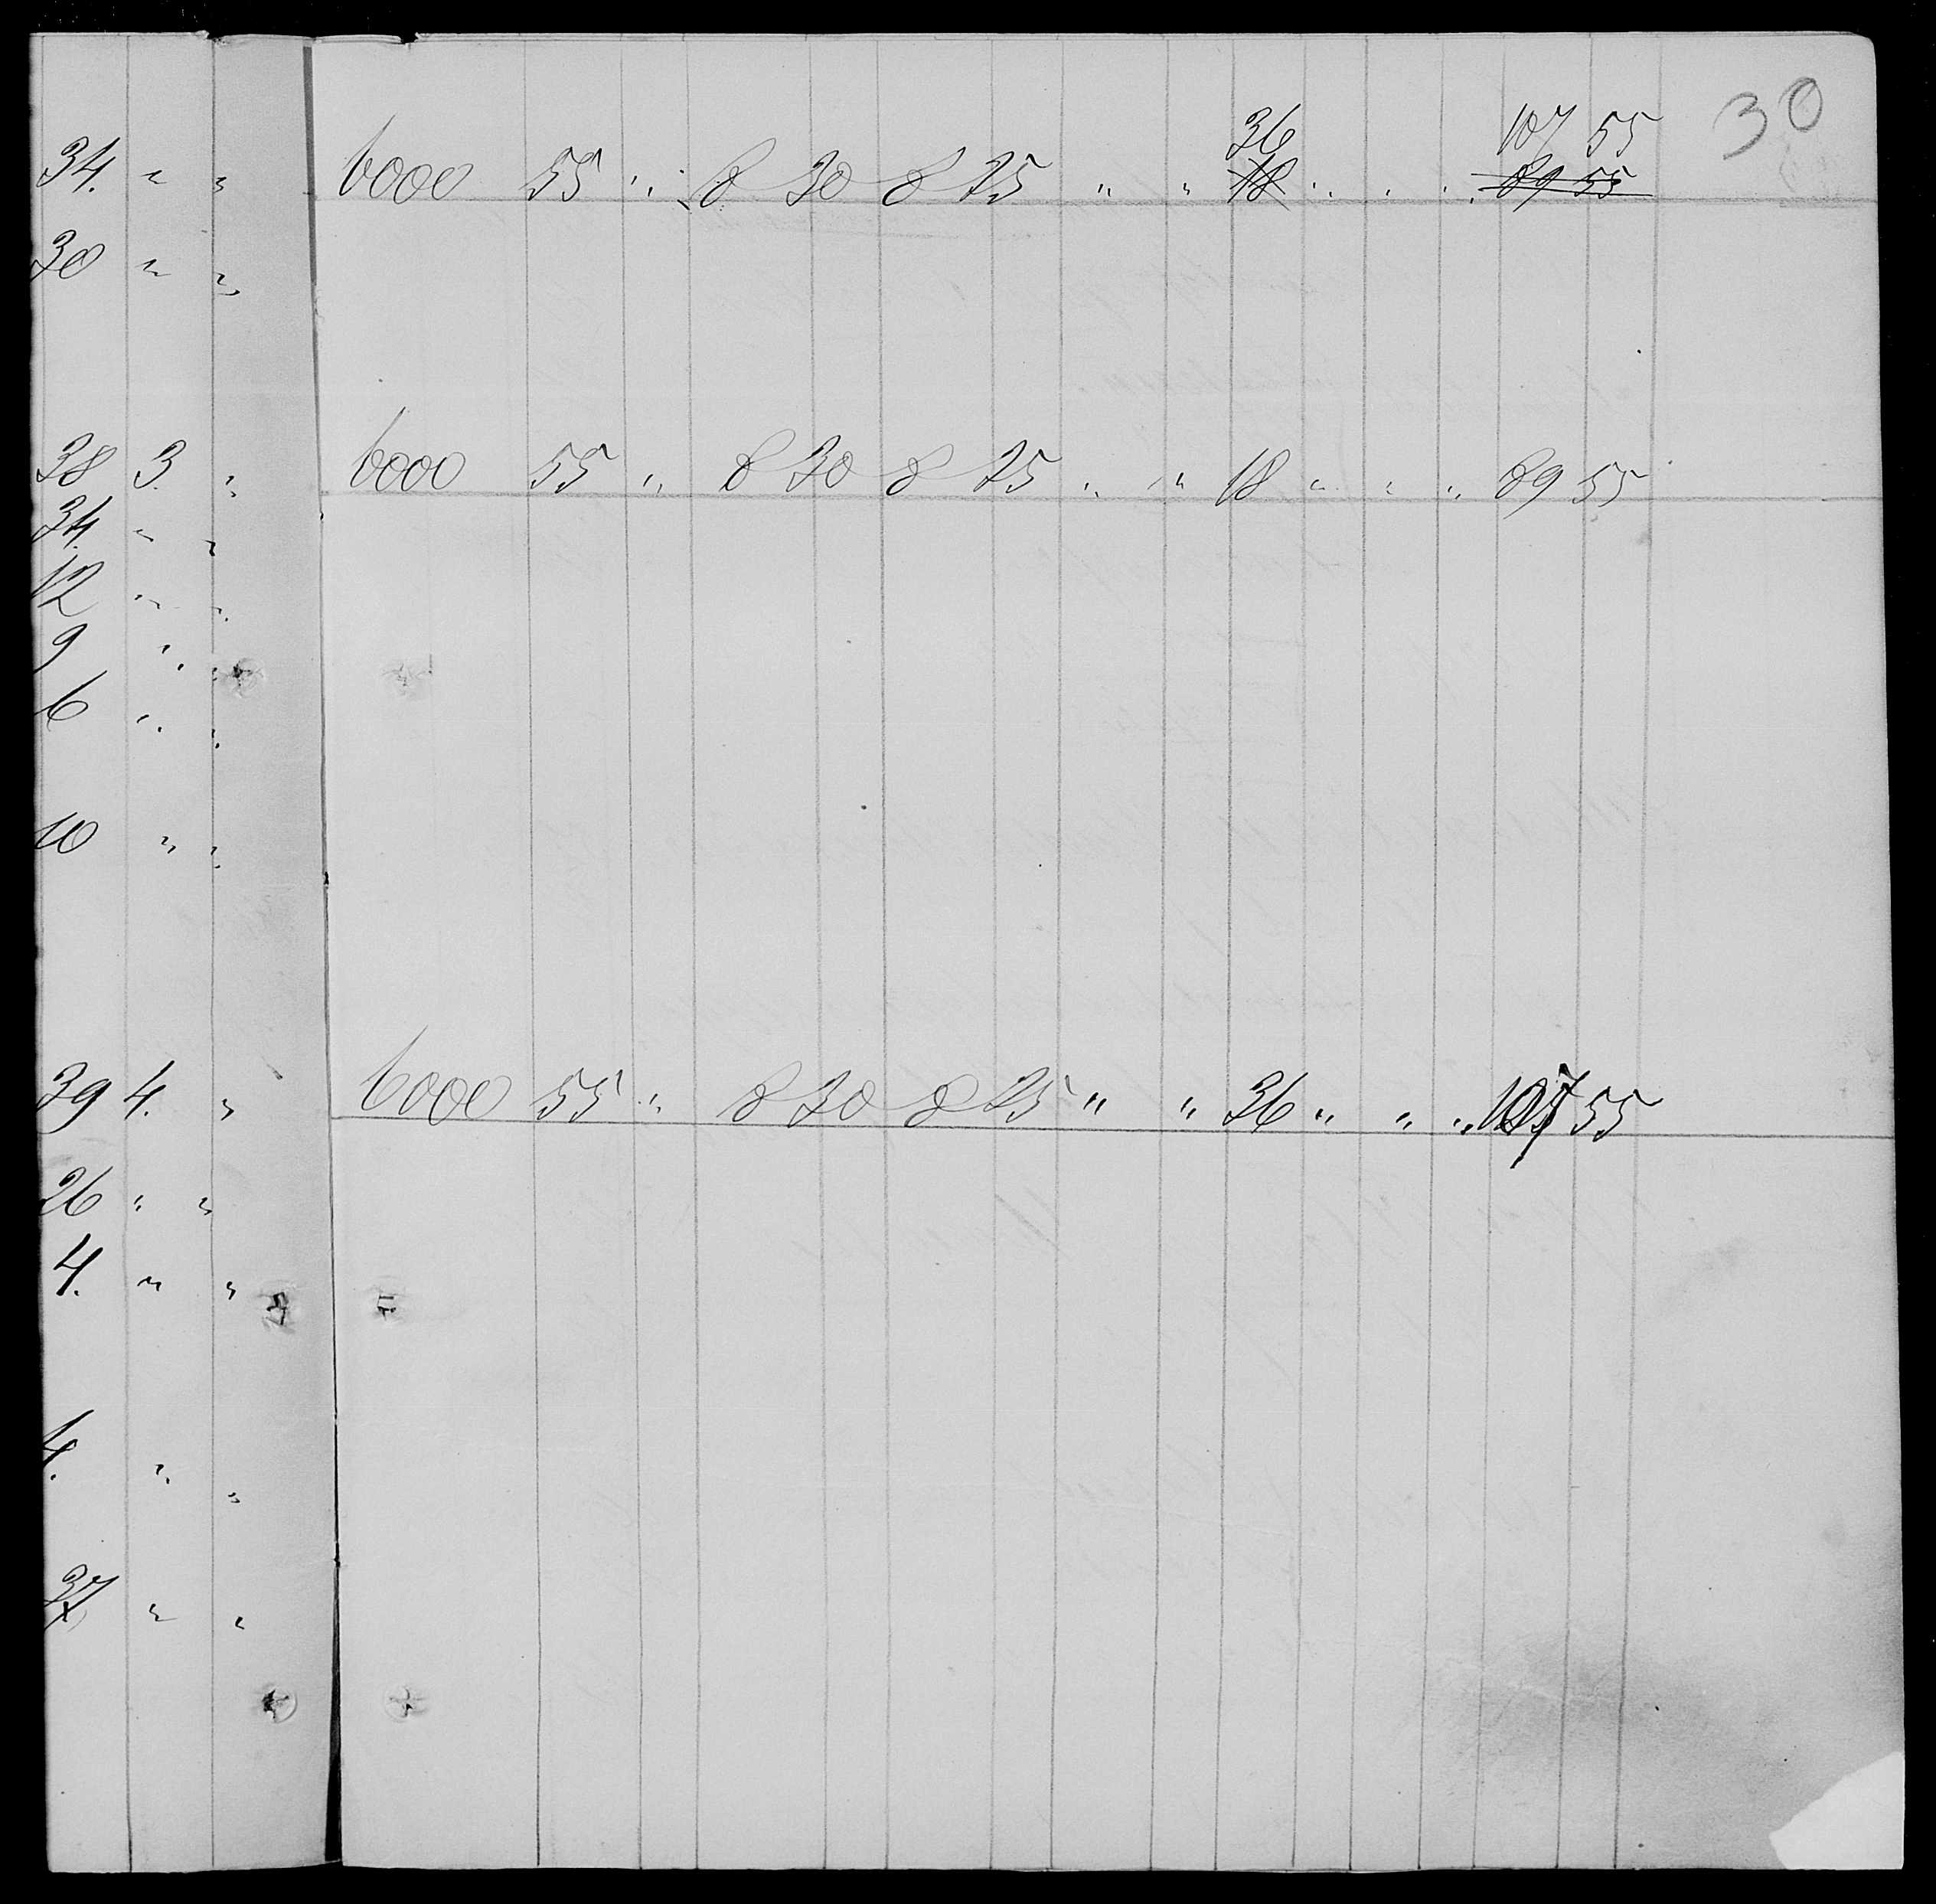 30
36 107 55
34. " " 6000 55 " 8 30 8 25 " " 18 " " " 89 55
30 " "
38 3. " 6000 55 " 8 30 8 25 " " 18 " " " 89 55
34. " "
12 " "
9 " "
6 " "
10 " "
39 4. " 6000 55 " 8 30 8 25 " " 36 " " " 107 55
26 " "
4. " "
4. " "
37 " "